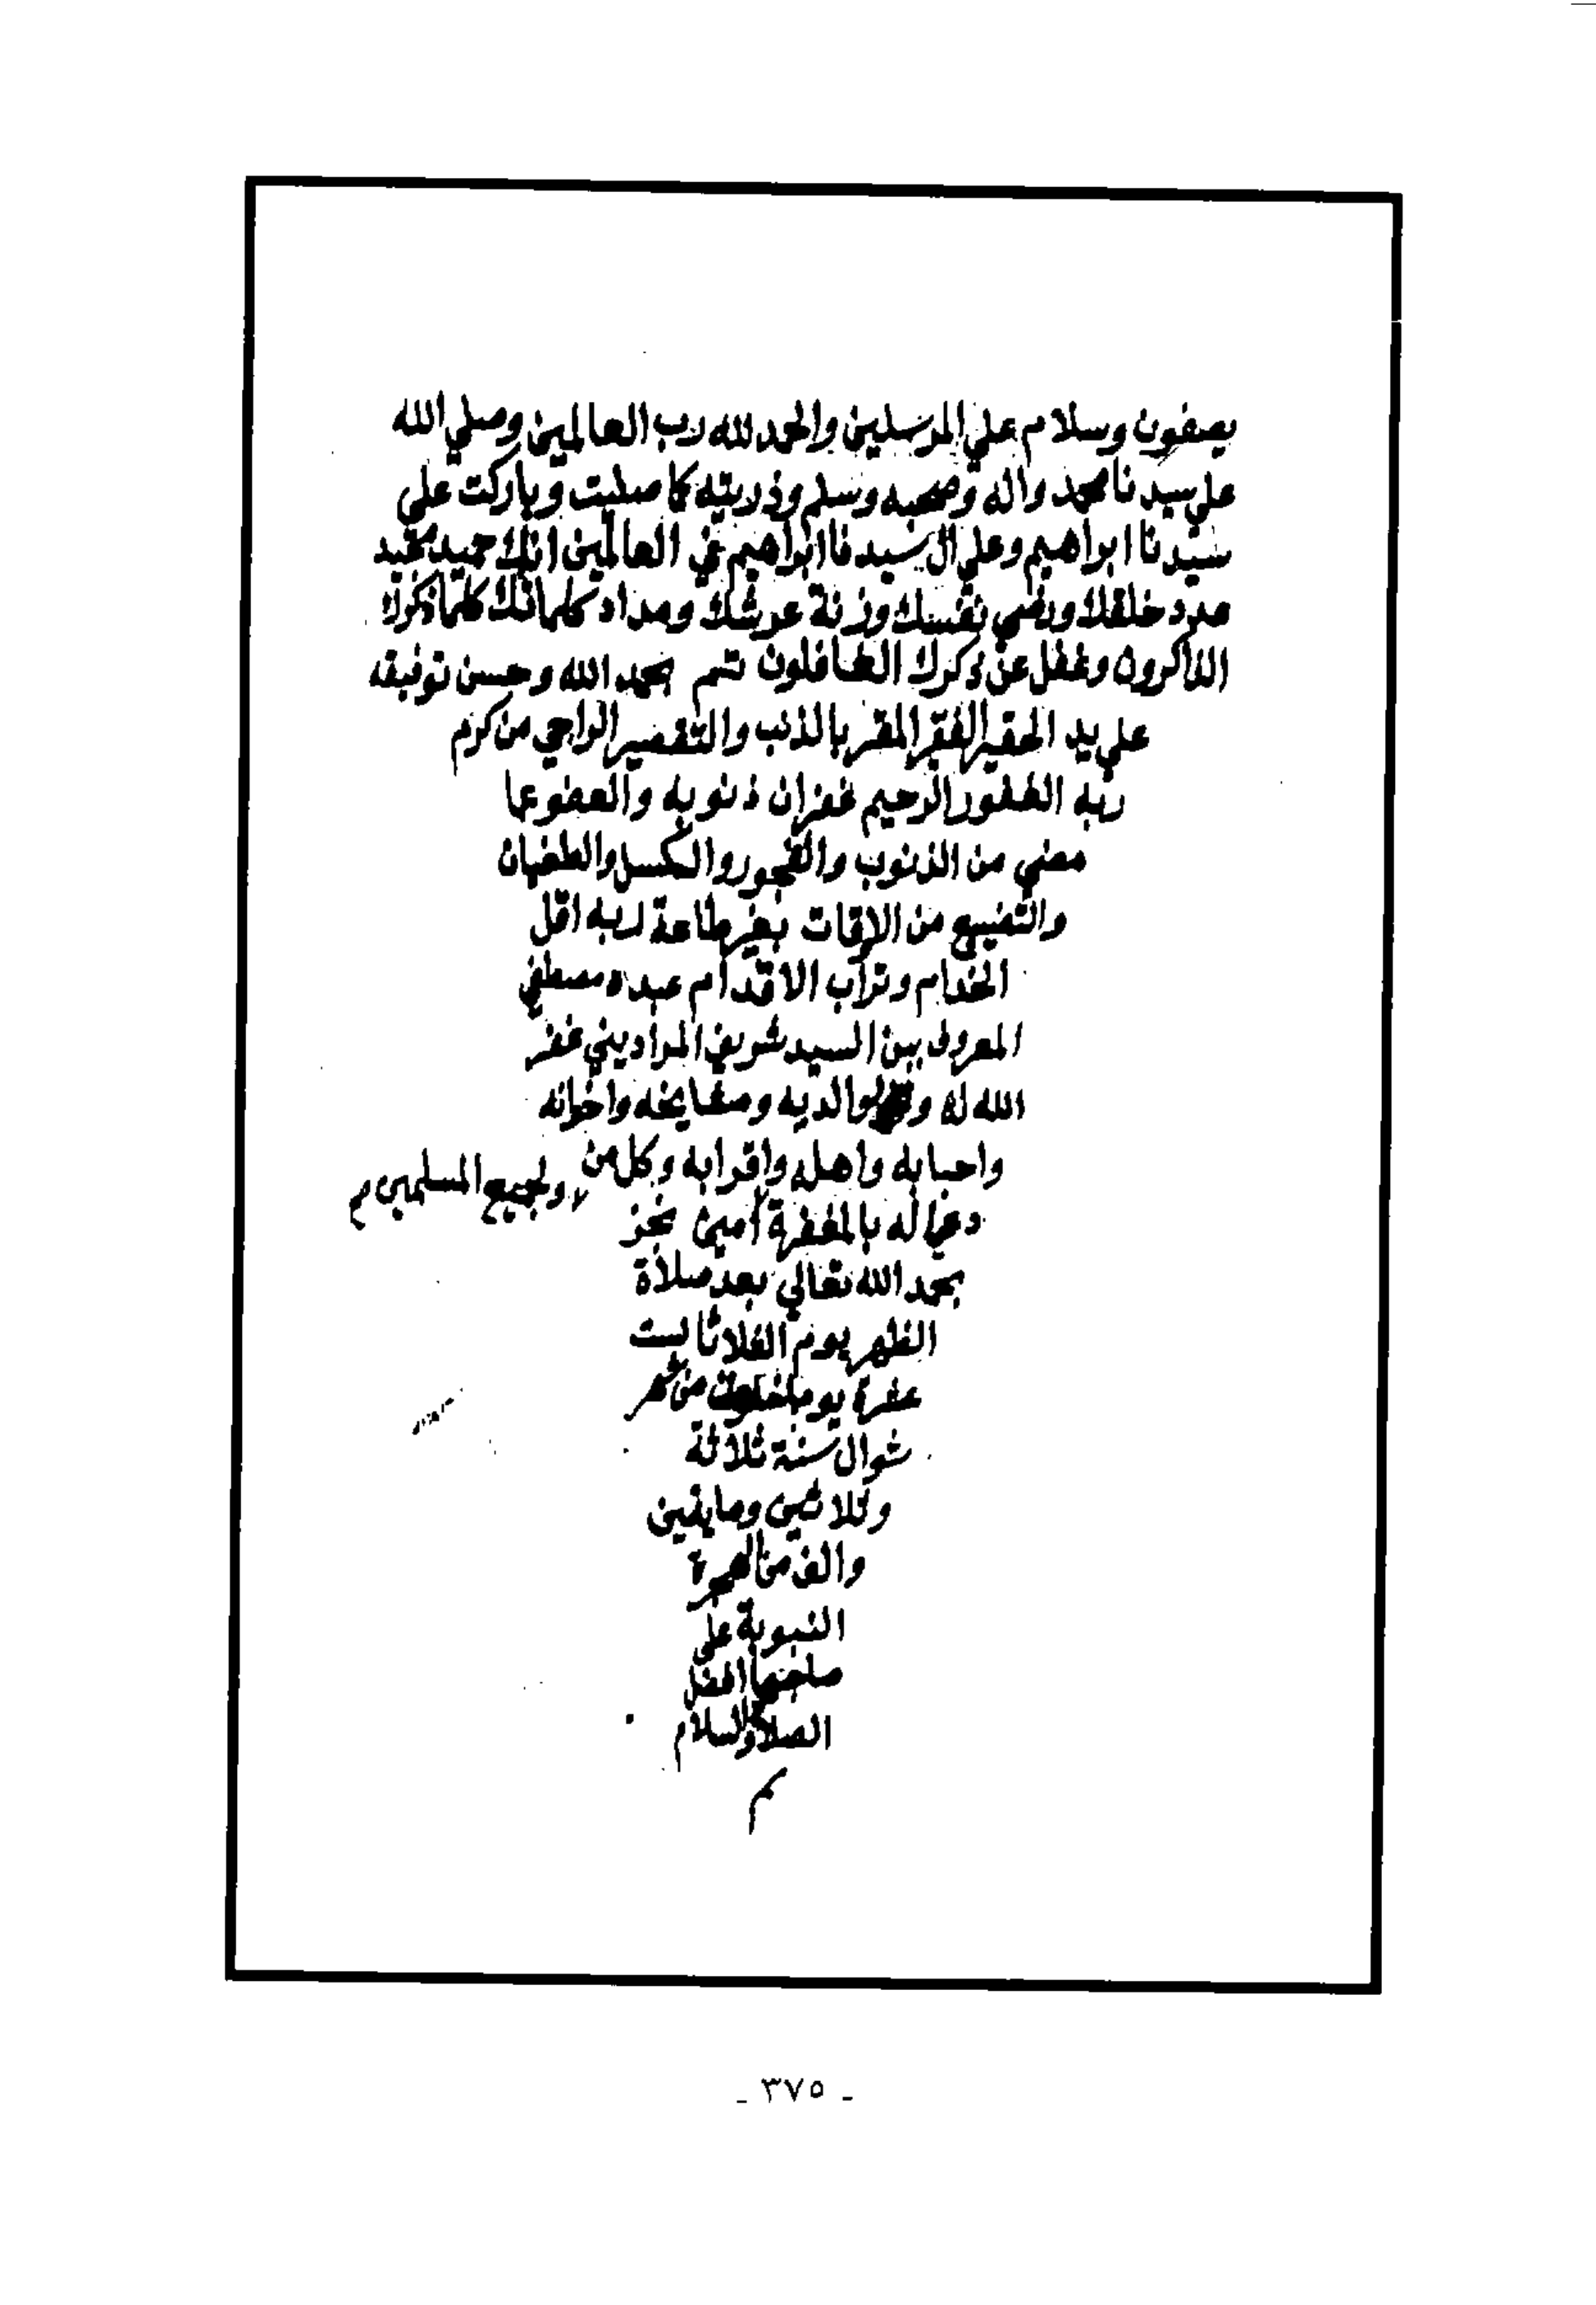 يصفون وسلام علي المرسلين والحمد لله رب العالمين وصلي الله
علي سيدنا محمد واله وصحبه وسلم وذريته كما صليت وباركت على
سيدنا ابراهيم وعلي ال سيدنا ابراهيم في العالمين انك حميد مجيد
عدد خلقك ورضي نفسك وزنة عرشك ومداد كلماتك كلما ذكرك
الذاكرون وغفل عن ذكرك الغافلون تم بحمد الله وحسن توفيقه
علي يد الحقير الفقير المقر بالذنب والتقصير الراجي من كرم
ربه الغفور الرحيم غفران ذنوبه والعفو عما
مضي من الذنوب والفجور والكسل والطغيان
والتضييع من الاوقات بغير طاعة لربه اقل
الخدام وتراب الاقدام عبده مصطفي
المعروف بين السيد شريف المراديني غفر
الله له ولوالديه ومشايخه واخوانه
واحبابه واهله واقرابه وكل من
ولجميع المسلمين م
دعي له بالمغفرة امين نجز
بحمد الله تعالي بعد صلاة
الظهر يوم الثلاثا لست
عشرة يوما خلت من شهر
شوال سنة ثلاثة
وثلاثين ومايتين
والف من الهجرة
النبوية على
صاحبها افضل
الصلاة والسلام
م
- ٣٧٥ -